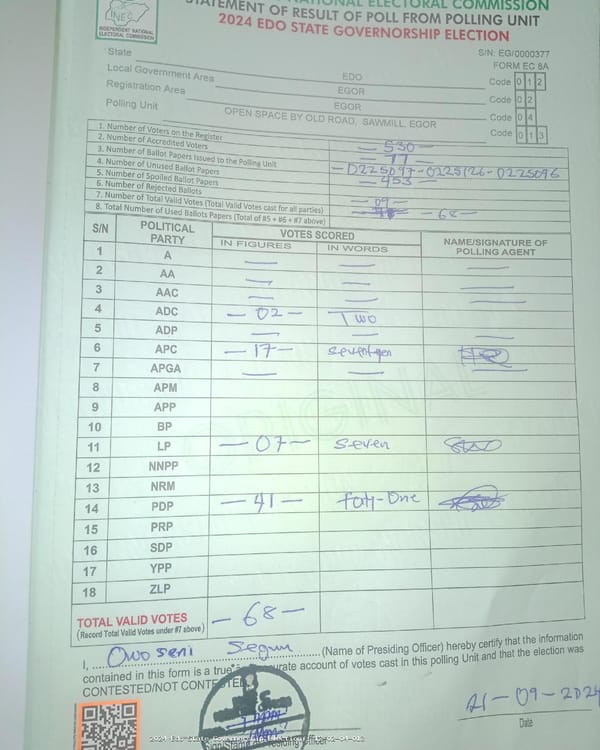 NATIONAL ELECTORAL COMMISSION
STATEMENT OF RESULT OF POLL FROM POLLING UNIT
2024 EDO STATE GOVERNORSHIP ELECTION
INEC
INDEPENDENT NATIONAL ELECTORAL COMMISSION
S/N: EG/0000377
FORM EC 8A
State EDO Code 0 1 2
Local Government Area EGOR Code 0 2
Registration Area EGOR Code 0 4
Polling Unit OPEN SPACE BY OLD ROAD, SAWMILL, EGOR Code 0 1 3
1. Number of Voters on the Register — 530 —
2. Number of Accredited Voters — 77 —
3. Number of Ballot Papers Issued to the Polling Unit
4. Number of Unused Ballot Papers — 453 —
5. Number of Spoiled Ballot Papers
6. Number of Rejected Ballots — 09 —
7. Number of Total Valid Votes (Total Valid Votes cast for all parties) — 68 —
8. Total Number of Used Ballots Papers (Total of #5 + #6 + #7 above)
S/N POLITICAL PARTY VOTES SCORED NAME/SIGNATURE OF POLLING AGENT
IN FIGURES IN WORDS
1 A — —
2 AA — —
3 AAC — —
4 ADC — 02 — Two
5 ADP — —
6 APC — 17 — Seventeen
7 APGA — —
8 APM
9 APP
10 BP
11 LP — 07 — Seven
12 NNPP
13 NRM
14 PDP — 41 — Foty-One
15 PRP
16 SDP
17 YPP
18 ZLP
TOTAL VALID VOTES — 68 —
(Record Total Valid Votes under #7 above)
I, Owoseni Segun (Name of Presiding Officer) hereby certify that the information
contained in this form is a true account of votes cast in this polling Unit and that the election was
CONTESTED/NOT CONTESTED.
21-09-2024
Date